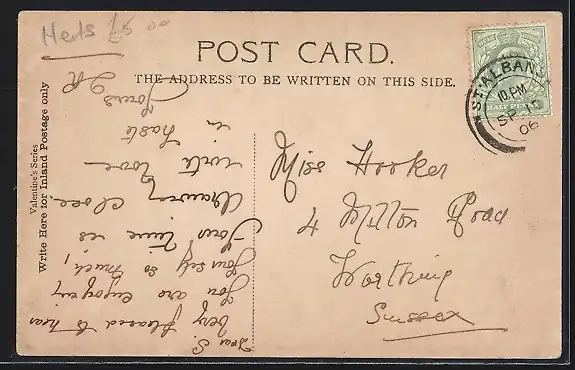 Herts £5 00
POST CARD.
THE ADDRESS TO BE WRITTEN ON THIS SIDE.
Valentine's Series
Write Here for Inland Postage only
ST ALBANS
10.PM
SP 15
06
HALF PENNY
Miss Hooker
4 Milton Road
Worthing
Sussex
Dear S.
Very pleased to hear
you are enjoying
yourself so much,
Your time is
drawing close.
with love
in haste
Yours